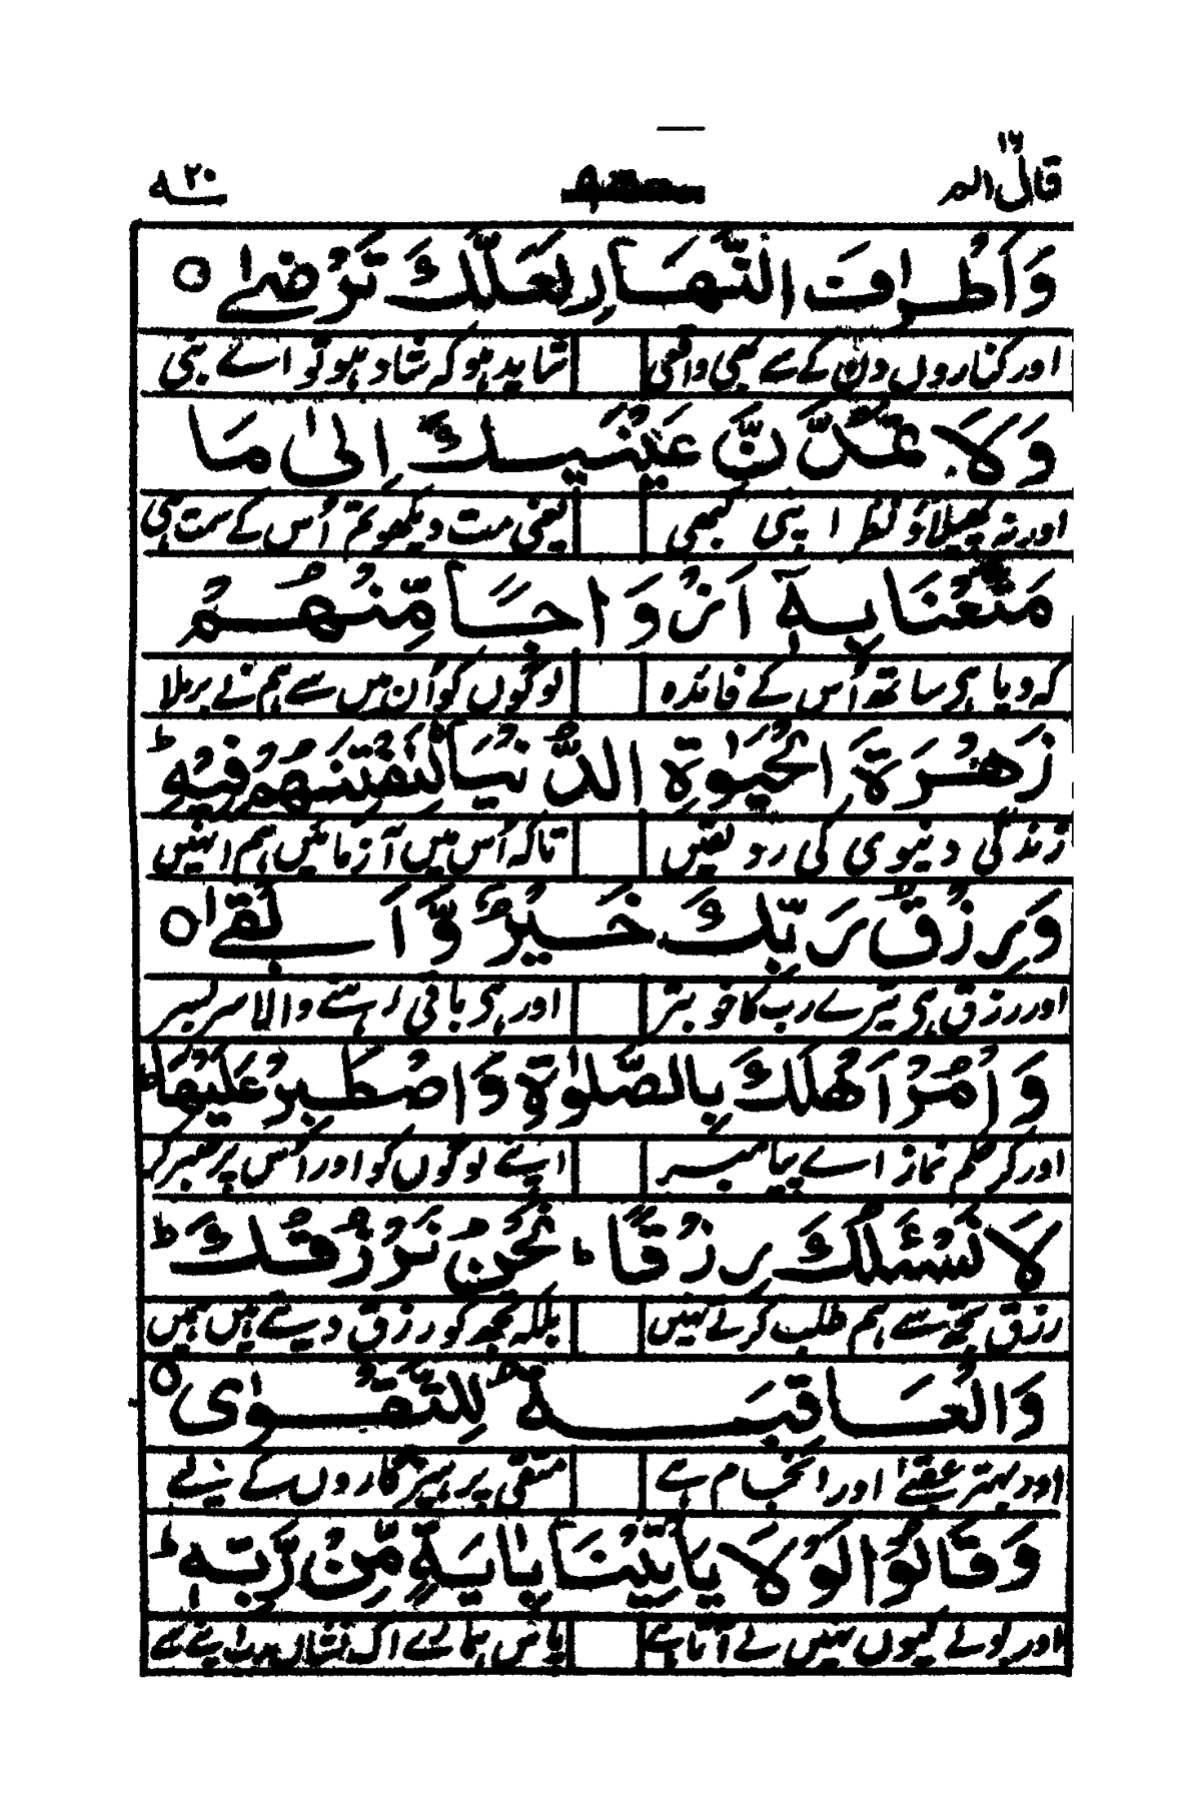 قال الم ١٦
طه ٢٠
وَاَطْرَافَ النَّهَارِ لَعَلَّكَ تَرْضٰى ○
اور کناروں دن کے سے بھی واقعی شاید ہو کہ شاد ہو تو اے نبی
وَلَا تَمُدَّنَّ عَيْنَيْكَ اِلٰى مَا
اور نہ پھیلاؤ نظر اپنی کبھی یعنی مت دیکھو تم اُس کے سمت ہی
مَتَّعْنَا بِهٖۤ اَزْوَاجًا مِّنْهُمْ
کہ دیا ہی ساتھ اُس کے فائدہ لوگوں کو اُن میں سے ہم نے برملا
زَهْرَةَ الْحَيٰوةِ الدُّنْيَا لِنَفْتِنَهُمْ فِيْهِ ؕ
زندگی دنیوی کی رونقیں تاکہ اُس میں آزمائیں ہم انہیں
وَرِزْقُ رَبِّكَ خَيْرٌ وَّاَبْقٰى ○
اور رزق ہی تیرے رب کا خوبتر اور ہی باقی رہنے والا سربسر
وَاْمُرْ اَهْلَكَ بِالصَّلٰوةِ وَاصْطَبِرْ عَلَيْهَا ؕ
اور کر حکم نماز اے پیامبر اپنے لوگوں کو اور اُس پر صبر کر
لَا نَسْئَلُكَ رِزْقًا ؕ نَحْنُ نَرْزُقُكَ ؕ
رزق تجھ سے ہم طلب کرتے نہیں بلکہ تجھ کو رزق دیتے ہیں ہمیں
وَالْعَاقِبَةُ لِلتَّقْوٰى ○
اور بہتر عقبےٰ اور انجام ہے متقی پرہیزگاروں کے لئے
وَقَالُوْا لَوْلَا يَاْتِيْنَا بِاٰيَةٍ مِّنْ رَّبِّهٖ ؕ
اور بولے کیوں نہیں لے آتا ہے پاس ہمارے اک نشاں رب اپنے سے